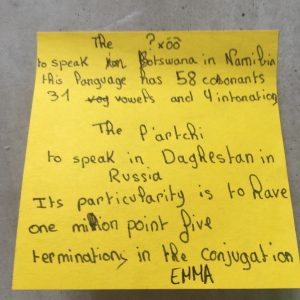 The ?xóõ
to speak in Botswana in Namibia
this language has 58 cosonants
31 vowels and 4 intonation
The l'artchi
to speak in Daghestan in
Russia
Its particularity is to have
one million point five
terminations in the conjugation
EMMA